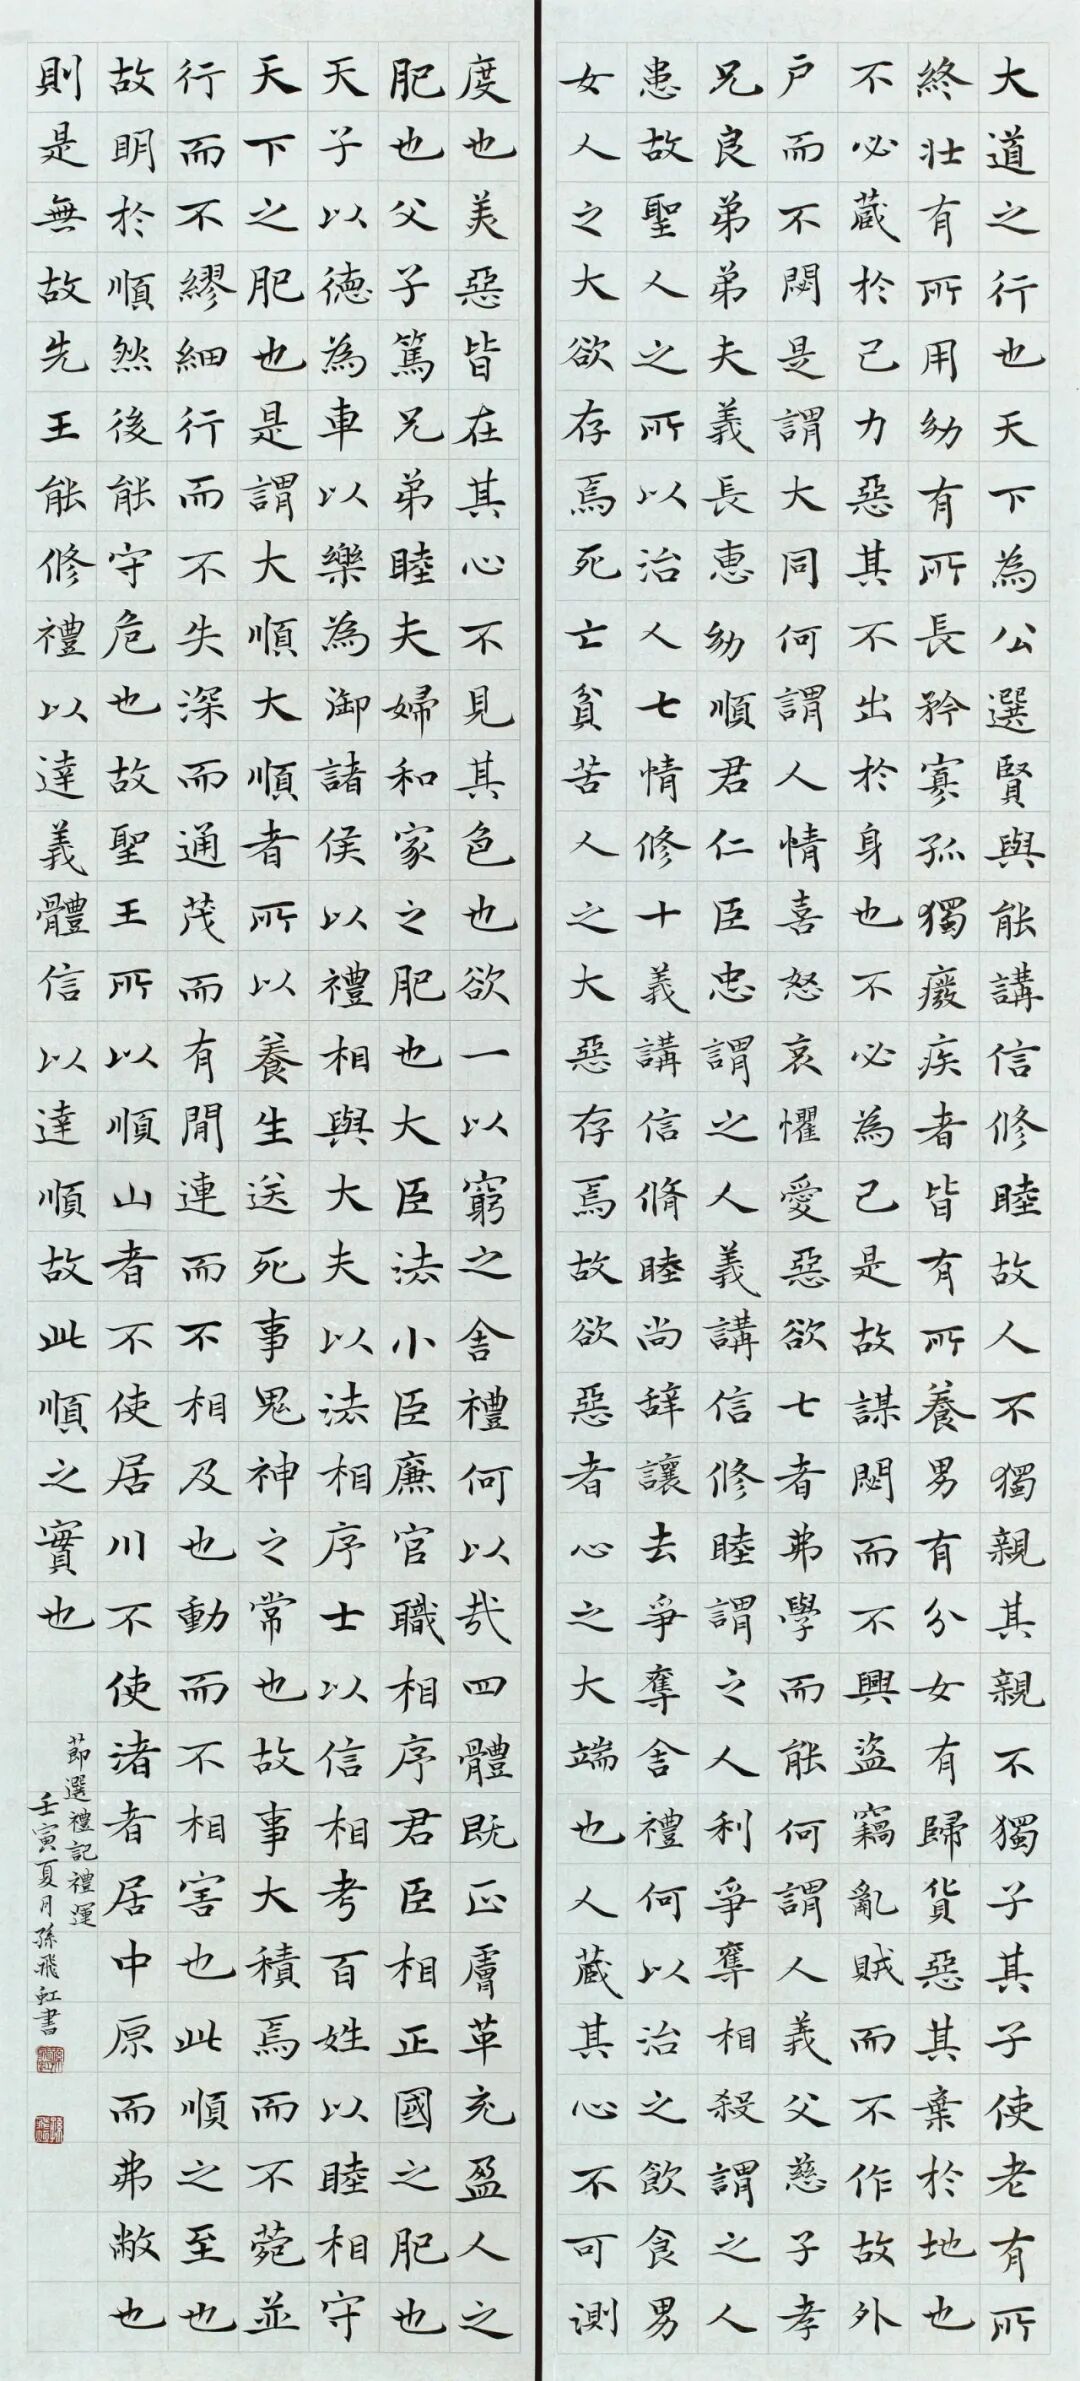 大道之行也天下為公選賢與能講信修睦故人不獨親其親不獨子其子使老有所
終壯有所用幼有所長矜寡孤獨癈疾者皆有所養男有分女有歸貨惡其棄於地也
不必藏於己力惡其不出於身也不必為己是故謀閉而不興盜竊亂賊而不作故外
戶而不閉是謂大同何謂人情喜怒哀懼愛惡欲七者弗學而能何謂人義父慈子孝
兄良弟弟夫義長惠幼順君仁臣忠謂之人義講信修睦謂之人利爭奪相殺謂之人
患故聖人之所以治人七情修十義講信脩睦尚辭讓去爭奪舍禮何以治之飲食男
女人之大欲存焉死亡貧苦人之大惡存焉故欲惡者心之大端也人藏其心不可測
度也美惡皆在其心不見其色也欲一以窮之舍禮何以哉四體既正膚革充盈人之
肥也父子篤兄弟睦夫婦和家之肥也大臣法小臣廉官職相序君臣相正國之肥也
天子以德為車以樂為御諸侯以禮相與大夫以法相序士以信相考百姓以睦相守
天下之肥也是謂大順大順者所以養生送死事鬼神之常也故事大積焉而不菀並
行而不繆細行而不失深而通茂而有閒連而不相及也動而不相害也此順之至也
故明於順然後能守危也故聖王所以順山者不使居川不使渚者居中原而弗敝也
則是無故先王能修禮以達義體信以達順故此順之實也
節選禮記禮運
壬寅夏月孫飛虹書